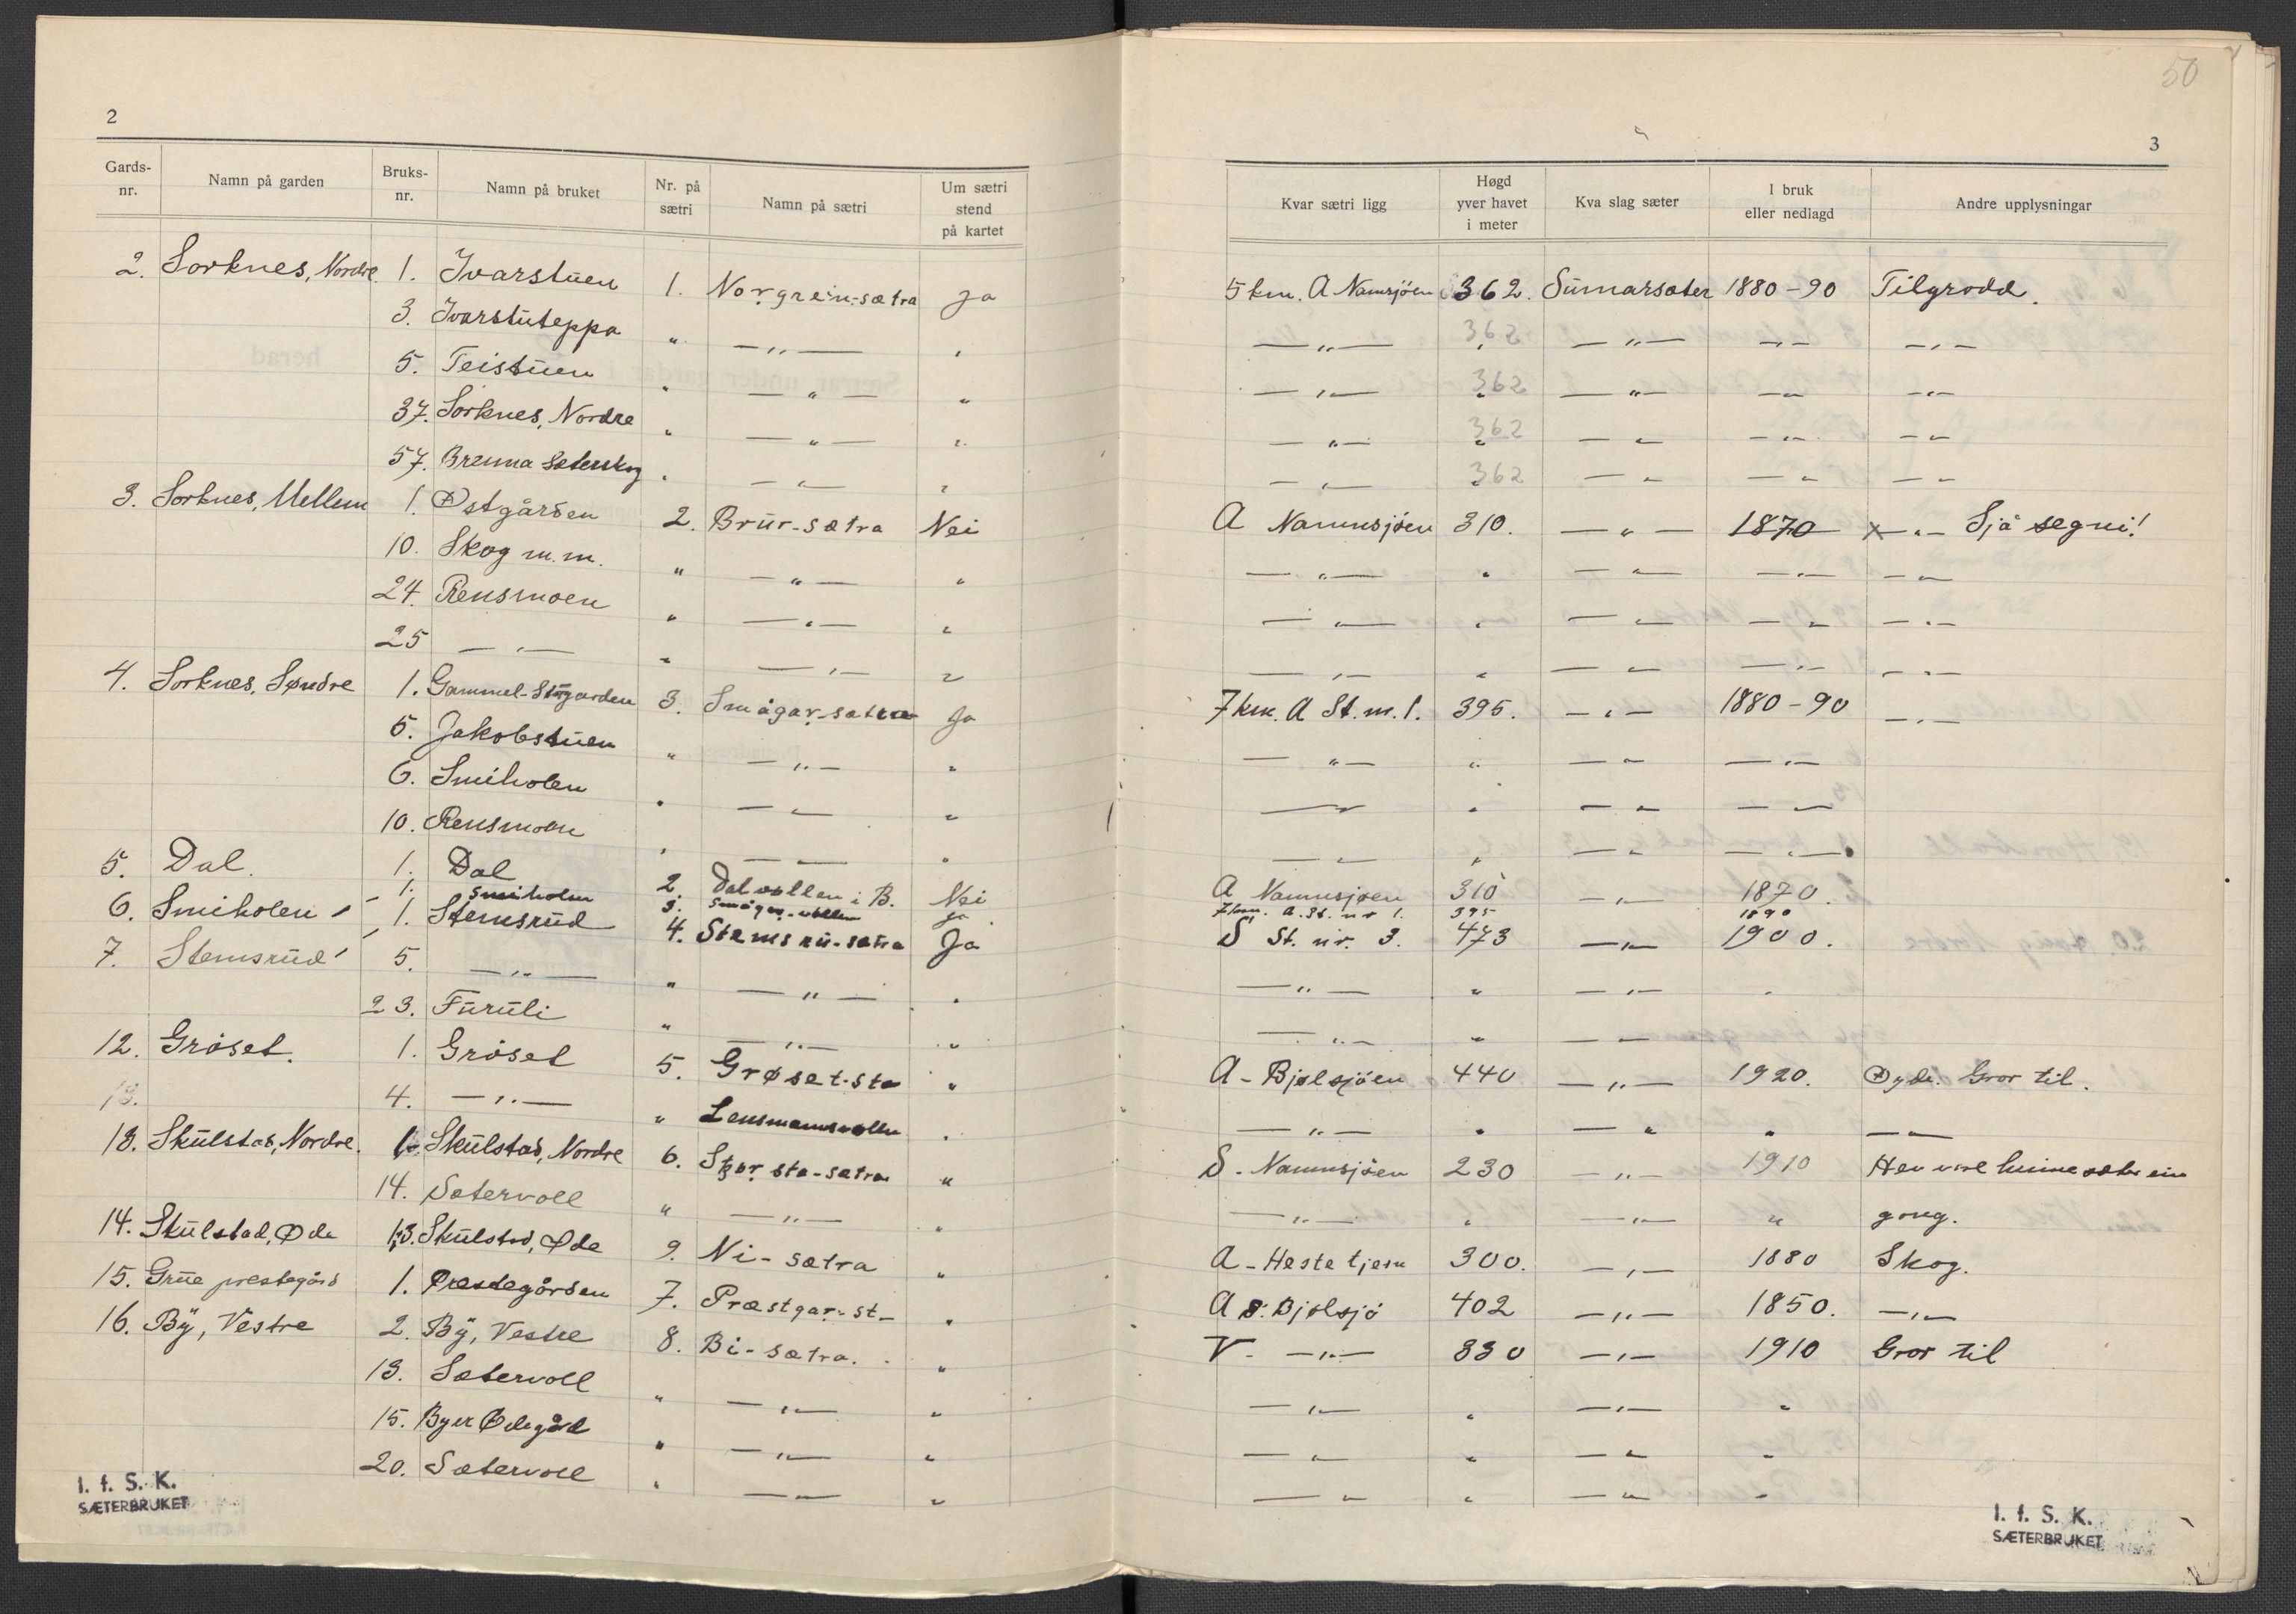 50
2
3
Gards-nr. Namn på garden Bruks-nr. Namn på bruket Nr. på sætri Namn på sætri Um sætri stend på kartet Kvar sætri ligg Høgd yver havet i meter Kva slag sæter I bruk eller nedlagd Andre upplysningar
2. Sorknes, Nordre. 1. Ivarstuen 1. Norgrein-sætra Ja 5 km. A Namsjöen 362. Sumarsæter 1880-90 Tilgrodd.
3. Ivarstuteppa " —"— " —"— 362 " —"— —"— —"—
5. Teistuen " —"— " —"— 362 " —"— —"— —"—
37. Sorknes, Nordre " —"— " —"— 362 " —"— —"— —"—
57. Brenna Seterskog " —"— " —"— 362 " —"— —"— —"—
3. Sorknes, Mellem 1. Østgården 2. Brur-sætra Nei A Namnsjöen 310. —"— 1870 x —"— Sjå segni!
10. Skog m.m. " —"— " —"— " —"— —"— —"—
24. Rensmoen " —"— " —"— " —"— —"— —"—
25 —"— " —"— " —"— " —"— —"— —"—
4. Sorknes, Søndre 1. Gammel-Stugarden 3. Smågar-sætra Ja 7 km. A St. nr. 1. 395. —"— 1880-90 —"—
5. Jakobstuen " —"— " —"— " —"— —"—
6. Smiholen " —"— " —"— " —"— —"—
10. Rensmoen " —"— " —"— " —"— —"—
5. Dal. 1. Dal 2. Dalvollen i B. Nei A Namnsjøen 310 —"— 1870.
1. Smiholen 3. Smågar-vollen Ja 7 km. A. St. nr 1. 395 1890
6. Smiholen 1. Stemsrud 4. Stemsru-sætra Ja S St. nr. 3. 473 —"— 1900.
7. Stemsrud 5. —"— " —"— " —"— " —"— "
23. Furuli " —"— " —"— " —"—
12. Gröset. 1. Gröset 5. Grøset-sta " A - Bjølsjöen 440 —"— 1920. Øyde. Gror til.
13. 4. —"— " Lensmannsvollen " —"— " —"— " —"—
13. Skulstad, Nordre. 1. Skulstad, Nordre 6. Skørsta-sætra " S. Namnsjöen 230 —"— 1910 Hev vore heimesæter ein
14. Sætervoll " —"— " —"— " —"— " gong.
14. Skulstad, Øde 13. Skulstad, Øde 9. Ni-sætra " A - Hestetjern 300. —"— 1880 Skog.
15. Grue prestegård 1. Prestegården 7. Præstgar-st- " A S. Bjølsjö 402 —"— 1850. —"—
16. Bÿ, Vestre 2. Bÿ, Vestre 8. Bi-sætra. " V. —"— 330 —"— 1910 Gror til
13. Sætervoll " —"— " —"— " —"— "
15. Byer Ødegård " —"— " —"— " —"— "
20. Sætervoll " —"— " —"— " —"— "
I. f. S. K.
SÆTERBRUKET
I. f. S. K.
SÆTERBRUKET